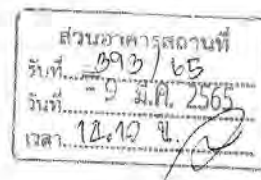 ส่วนอาคารสถานที่
รับที่ 393/65
วันที่ - 9 มี.ค. 2565
เวลา 14.10 น.